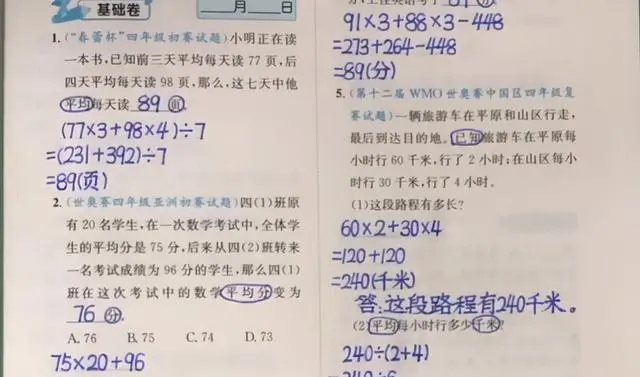 基础卷
月 日
1.(“春蕾杯”四年级初赛试题)小明正在读
一本书,已知前三天平均每天读 77 页,后
四天平均每天读 98 页,那么,这七天中他
平均每天读 89 页
(77×3+98×4)÷7
=(231+392)÷7
=89(页)
2.(世奥赛四年级亚洲初赛试题)四(1)班原
有 20 名学生,在一次数学考试中,全体学
生的平均分是 75 分,后来从四(2)班转来
一名考试成绩为 96 分的学生,那么四(1)
班在这次考试中的数学平均分变为
76 分.
A. 76 B. 75 C. 74 D. 73
75×20+96
91×3+88×3-448
=273+264-448
=89(分)
5.(第十二届 WMO 世奥赛中国区四年级复
赛试题)一辆旅游车在平原和山区行走,
最后到达目的地。已知旅游车在平原每
小时行 60 千米,行了 2 小时;在山区每小
时行 30 千米,行了 4 小时。
(1)这段路程有多长?
60×2+30×4
=120+120
=240(千米)
答:这段路程有240千米。
(2)平均每小时行多少千米?
240÷(2+4)